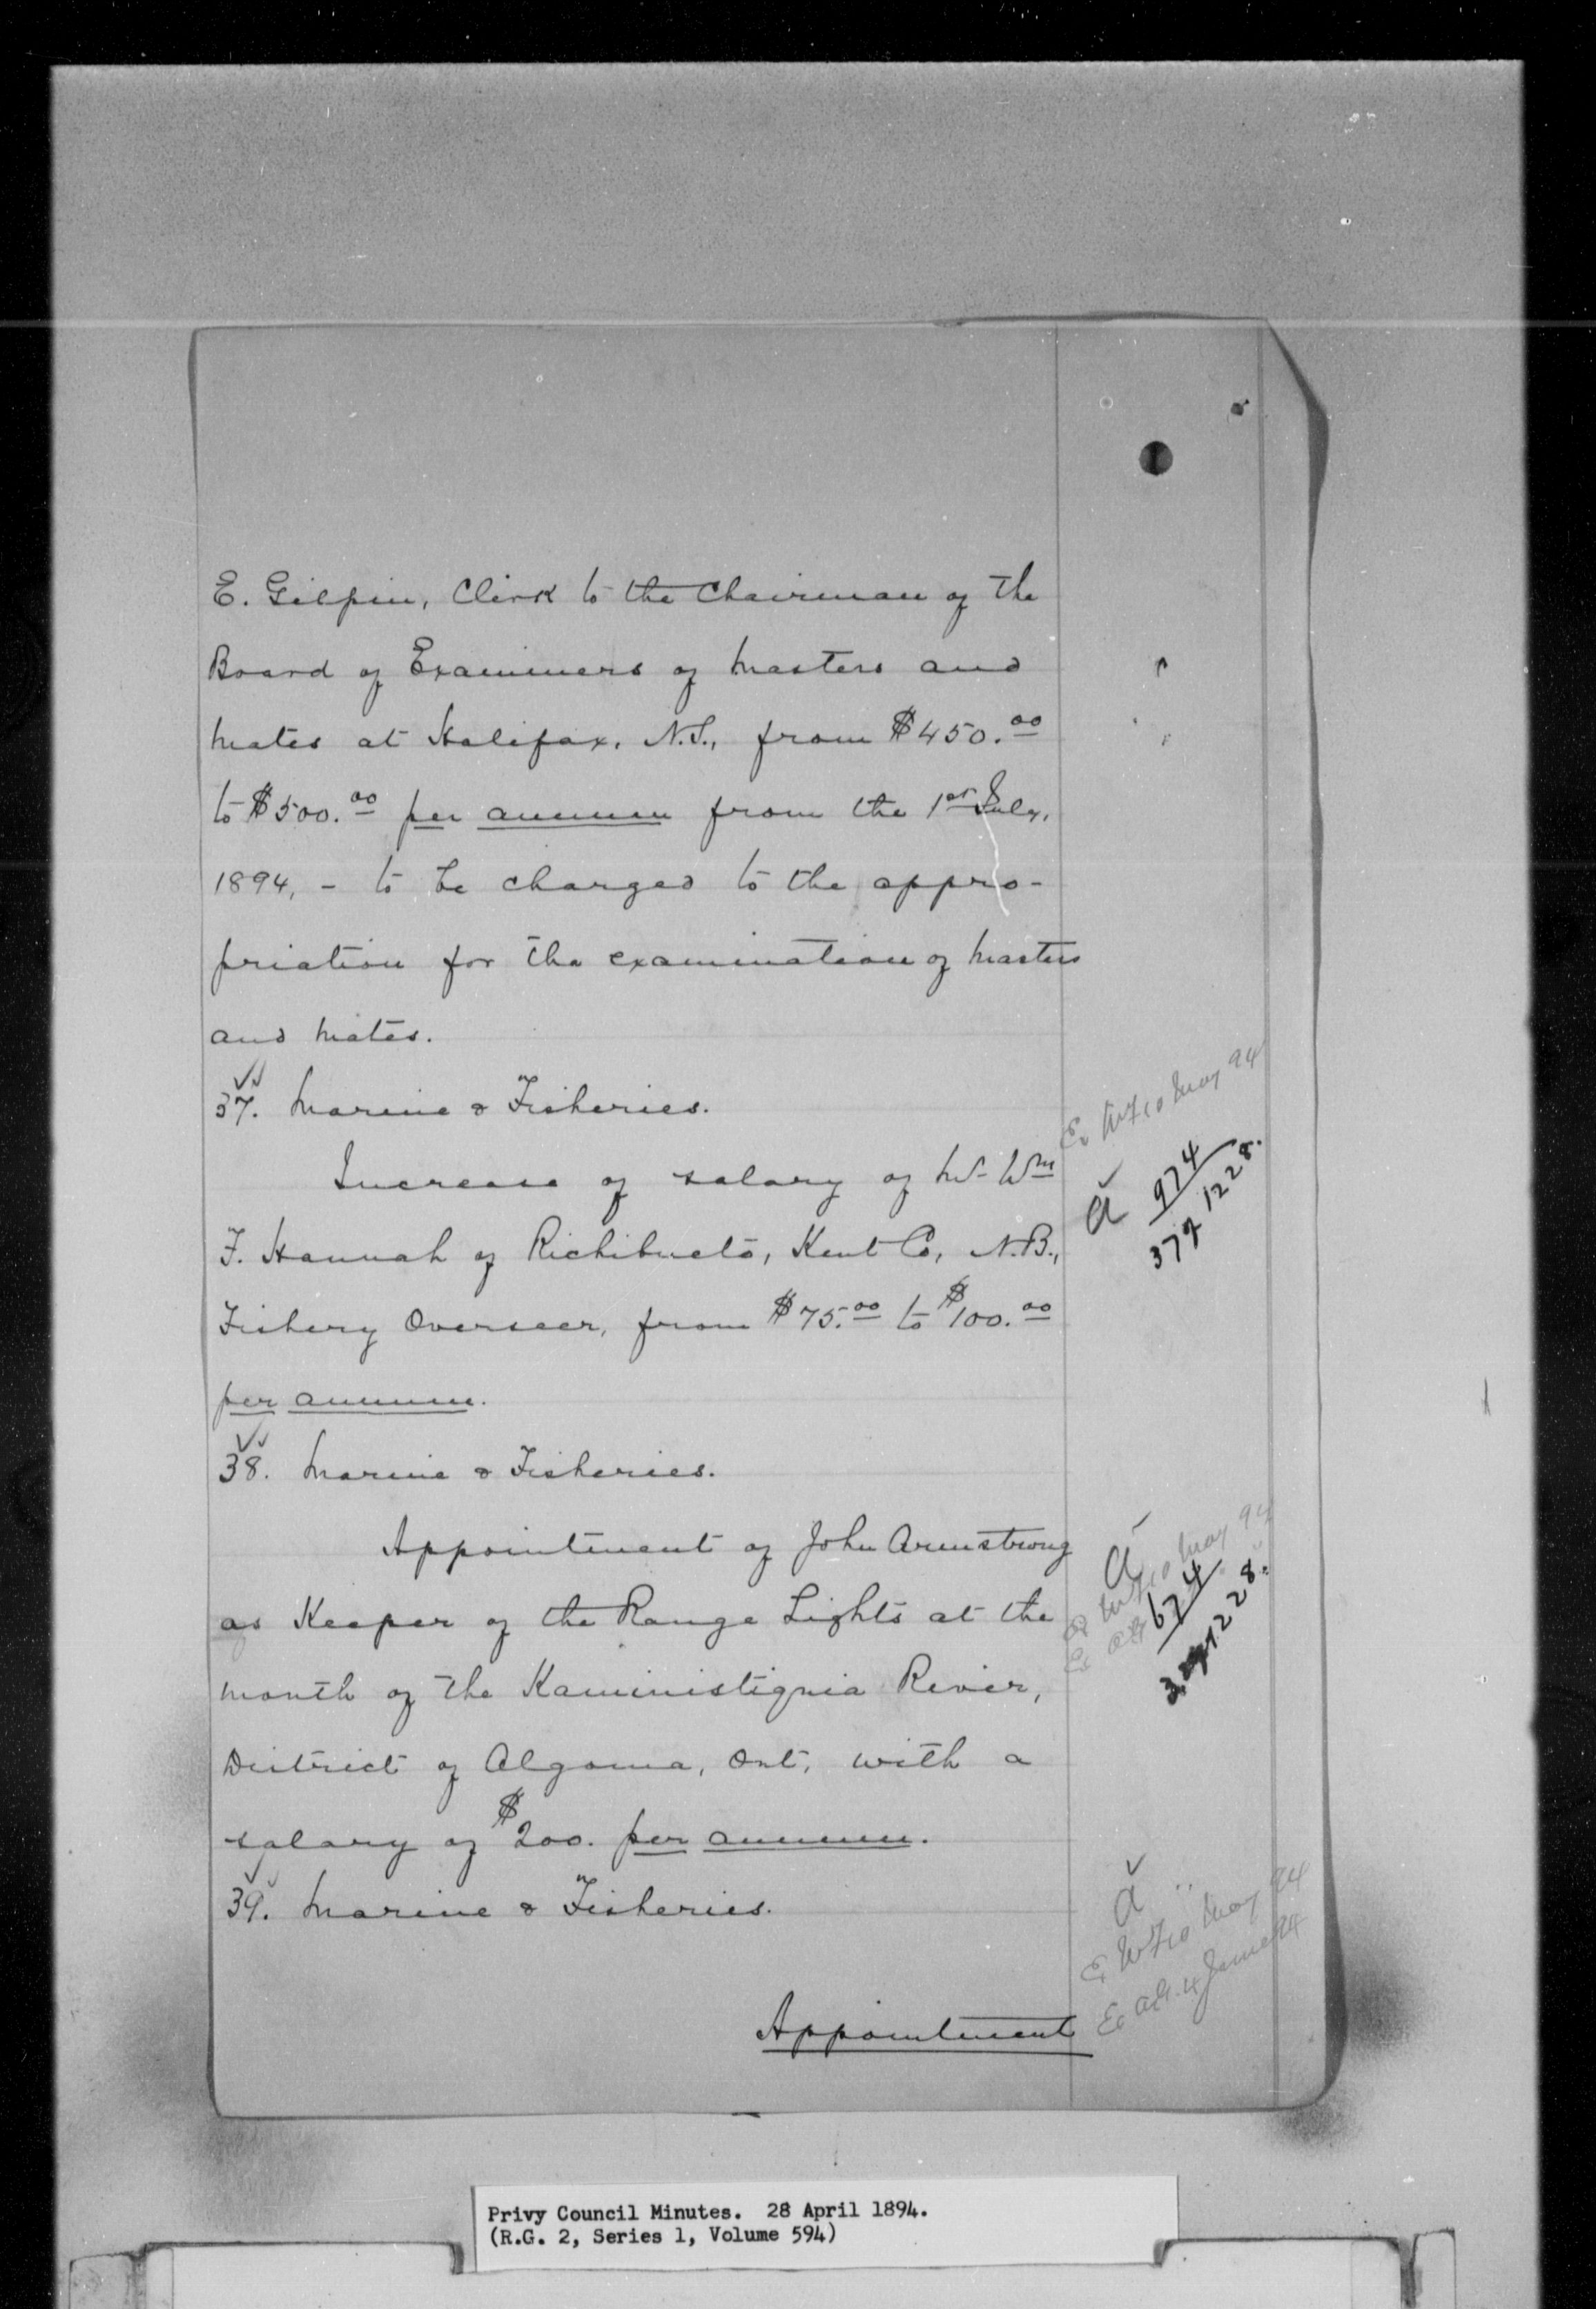 E. Gilpin, Clerk to the Chairman of the
Board of Examiners of Masters and
Mates at Halifax, N.S., from $450.00
to $500.00 per annum from the 1st July,
1894, - to be charged to the appro-
priation for the examination of Masters
and Mates.
37. Marine & Fisheries.
Ex W.F. 10 May 94
Increase of salary of Mr Wm
a 974
37 of 1228.
F. Hannah of Richibucto, Kent Co, N.B.,
Fishery Overseer, from $75.00 to $100.00
per annum.
38. Marine & Fisheries.
Appointment of John Armstrong
a
10 May 94
as Keeper of the Range Lights at the
674
1228.
mouth of the Kaministiquia River,
District of Algoma, Ont, with a
salary of $200. per annum.
39. Marine & Fisheries.
a
Ex W.F. 10 May 94
Ex 4 June 94
Appointment
Privy Council Minutes. 28 April 1894.
(R.G. 2, Series 1, Volume 594)